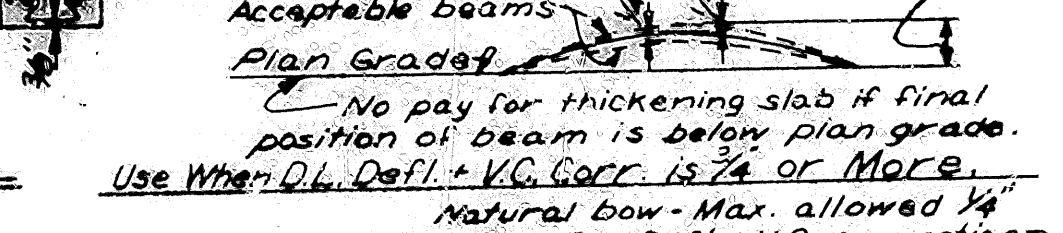 Acceptable beams
Plan Grade
No pay for thickening slab if final
position of beam is below plan grade.
Use When D.L. Defl. + V.C. Corr. is 3/4" or More.
Natural bow - Max. allowed 1/4"